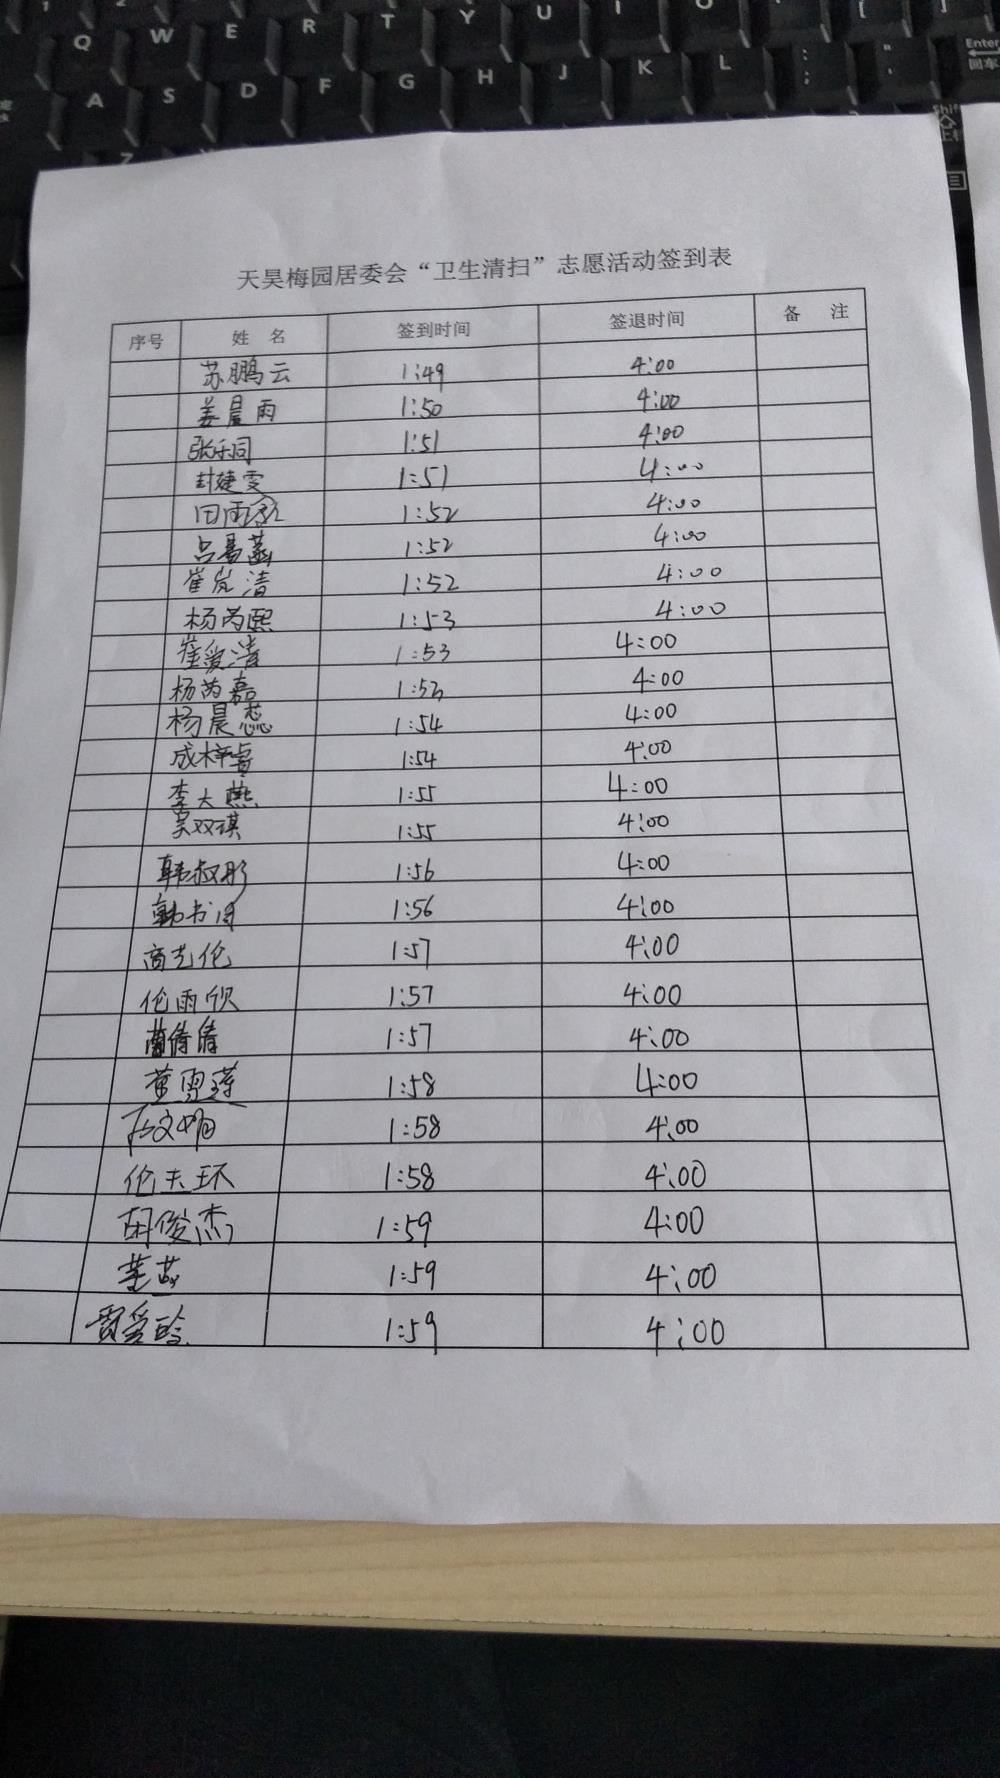 Q W E R T Y U I O
A S D F G H J K L
Enter
回车
天昊梅园居委会“卫生清扫”志愿活动签到表
序号 姓 名 签到时间 签退时间 备 注
苏鹏云 1:49 4:00
姜晨雨 1:50 4:00
张乐同 1:51 4:00
封婕雯 1:51 4:00
田雨 1:52 4:00
吕易菡 1:52 4:00
崔岚清 1:52 4:00
杨芮熙 1:53 4:00
崔爱清 1:53 4:00
杨芮嘉 1:53 4:00
杨晨蕊 1:54 4:00
成梓睿 1:54 4:00
李大燕 1:55 4:00
吴双琪 1:55 4:00
韩叔彤 1:56 4:00
韩书月 1:56 4:00
商克伦 1:57 4:00
伦雨欣 1:57 4:00
倩倩 1:57 4:00
黄雪莲 1:58 4:00
文娟 1:58 4:00
伦玉环 1:58 4:00
胡俊杰 1:59 4:00
1:59 4:00
贾爱玲 1:59 4:00